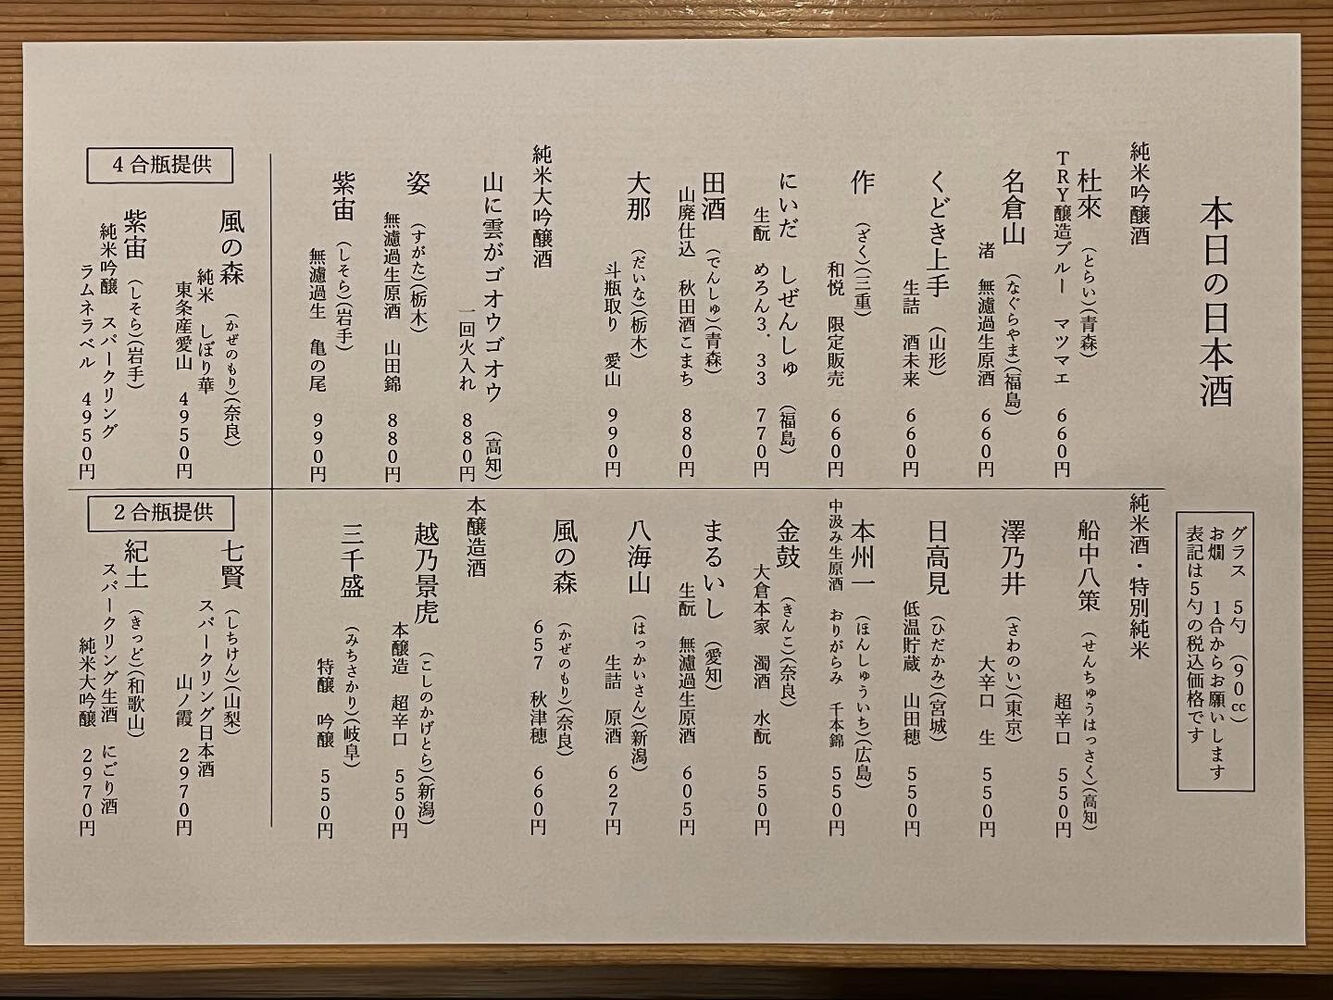 本日の日本酒
グラス　5勺　(90cc)
お燗　1合からお願いします
表記は5勺の税込価格です
純米吟醸酒
杜來　(とらい)(青森)
TRY醸造ブルー　マツマエ　660円
名倉山　(なぐらやま)(福島)
渚　無濾過生原酒　660円
くどき上手　(山形)
生詰　酒未来　660円
作　(ざく)(三重)
和悦　限定販売　660円
にいだ　しぜんしゅ　(福島)
生酛　めろん3.33　770円
田酒　(でんしゅ)(青森)
山廃仕込　秋田酒こまち　880円
大那　(だいな)(栃木)
斗瓶取り　愛山　990円
純米大吟醸酒
山に雲がゴオウゴオウ　(高知)
一回火入れ　880円
姿　(すがた)(栃木)
無濾過生原酒　山田錦　880円
紫宙　(しそら)(岩手)
無濾過生　亀の尾　990円
純米酒・特別純米
船中八策　(せんちゅうはっさく)(高知)
超辛口　550円
澤乃井　(さわのい)(東京)
大辛口　生　550円
日高見　(ひだかみ)(宮城)
低温貯蔵　山田穂　550円
本州一　(ほんしゅういち)(広島)
中汲み生原酒　おりがらみ　千本錦　550円
金鼓　(きんこ)(奈良)
大倉本家　濁酒　水酛　550円
まるいし　(愛知)
生酛　無濾過生原酒　605円
八海山　(はっかいさん)(新潟)
生詰　原酒　627円
風の森　(かぜのもり)(奈良)
657　秋津穂　660円
本醸造酒
越乃景虎　(こしのかげとら)(新潟)
本醸造　超辛口　550円
三千盛　(みちさかり)(岐阜)
特醸　吟醸　550円
4合瓶提供
風の森　(かぜのもり)(奈良)
純米　しぼり華
東条産愛山　4950円
紫宙　(しそら)(岩手)
純米吟醸　スパークリング
ラムネラベル　4950円
2合瓶提供
七賢　(しちけん)(山梨)
スパークリング日本酒
山ノ霞　2970円
紀土　(きっど)(和歌山)
スパークリング生酒　にごり酒
純米大吟醸　2970円